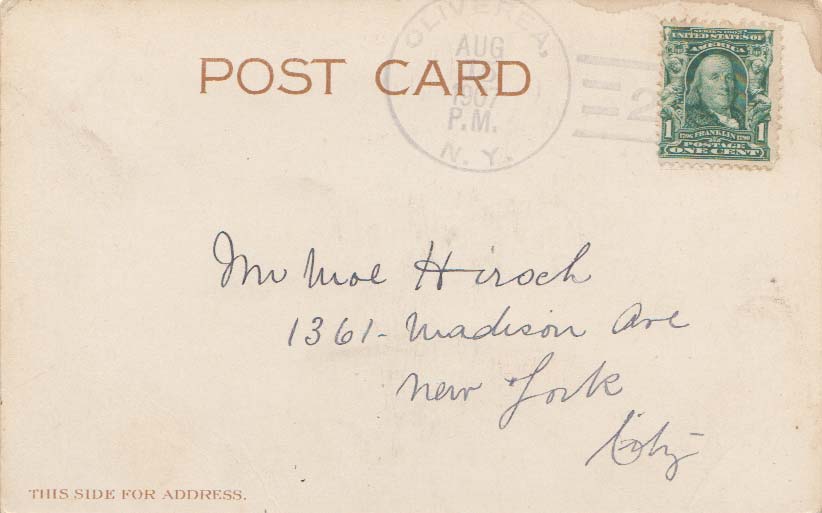 POST CARD
OLIVEREA,
AUG
1907
P.M.
N.Y.
2
SERIES 1902
UNITED STATES OF
AMERICA
1 1706 FRANKLIN 1790 1
POSTAGE
ONE CENT
Mr Moe Hirsch
1361- Madison Ave
New York
City
THIS SIDE FOR ADDRESS.